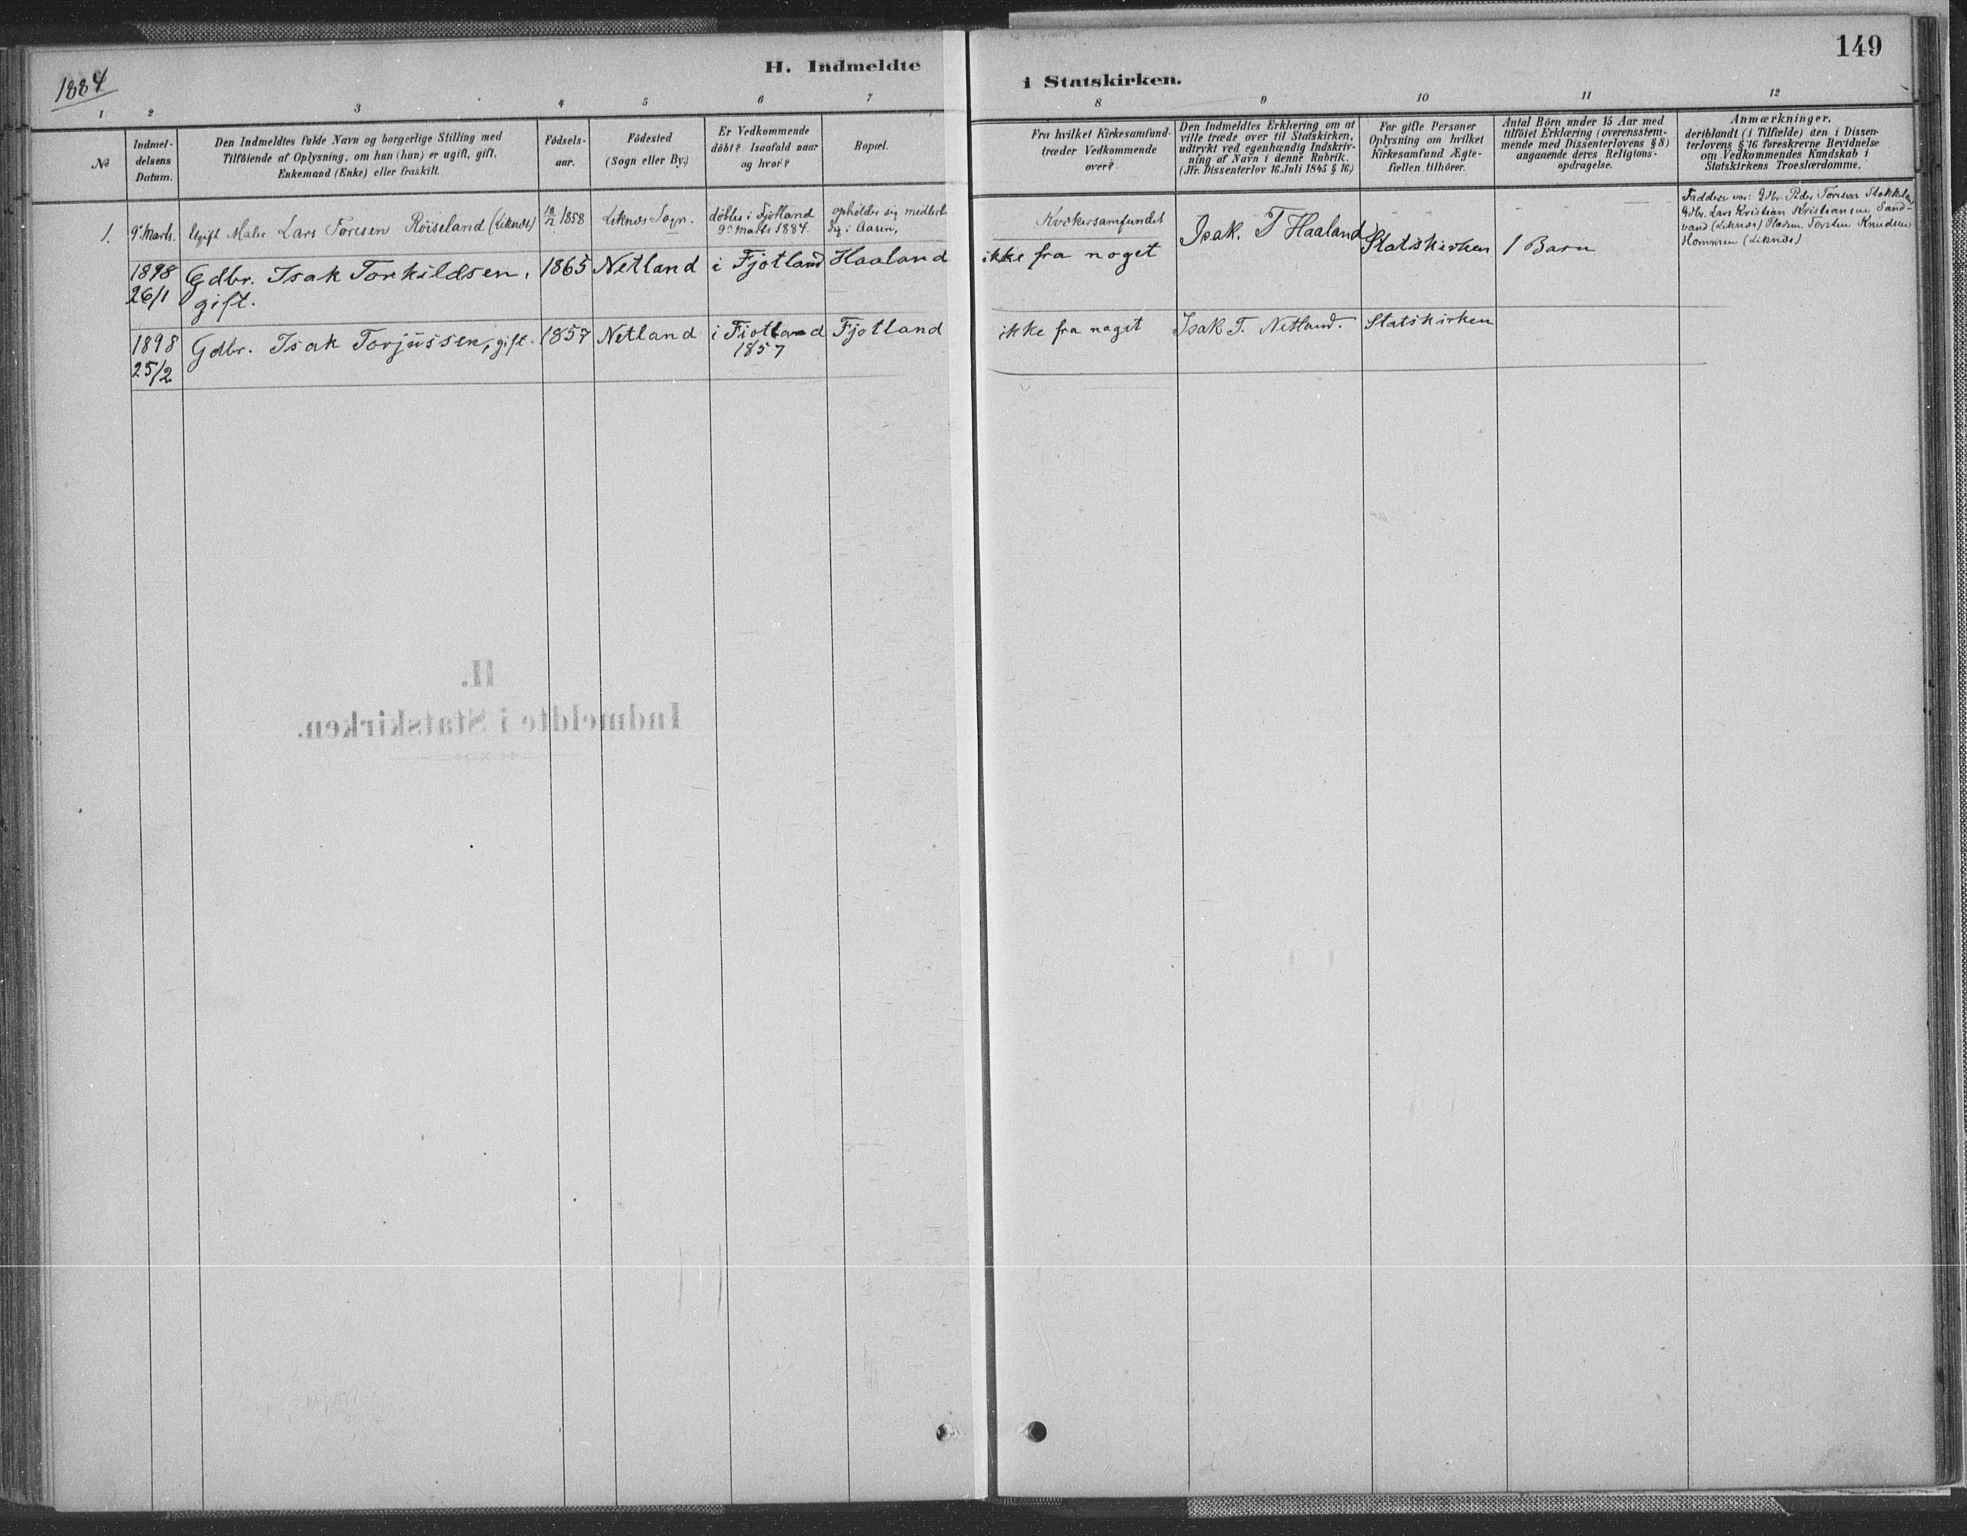 1884
H. Indmeldte
i Statskirken.
149
1 2 3 4 5 6 7 8 9 10 11 12
No
Indmeldelsens Datum.
Den Indmeldtes fulde Navn og borgerlige Stilling med
Tilföiende af Oplysning, om han (hun) er ugift, gift,
Enkemand (Enke) eller fraskilt.
Födsels-
aar.
Födested
(Sogn eller By.)
Er Vedkommende
döbt? Isaafald naar
og hvor?
Bopæl.
Fra hvilket Kirkesamfund
træder Vedkommende
over?
Den Indmeldtes Erklæring om at
ville træde over til Statskirken,
udtrykt ved egenhændig Indskriv-
ning af Navn i denne Rubrik.
(Jfr. Dissenterlov 16. Juli 1845 § 16.)
For gifte Personer
Oplysning om hvilket
Kirkesamfund Ægte-
fællen tilhörer.
Antal Börn under 15 Aar med
tilföiet Erklæring (overensstem-
mende med Dissenterlovens § 8)
angaaende deres Religions-
opdragelse.
Anmærkninger,
deriblandt (i Tilfælde) den i Dissen-
terlovens § 16 foreskrevne Bevidnelse
om Vedkommendes Kundskab i
Statskirkens Troeslærdomme.
1.
9de Marts.
Ugift Maler Lars Toresen Röiseland (Liknæs)
1858
Liknæs Sogn.
döbtes i Fjotland
9de Marts 1884.
opholder sig
i Aasen,
Kvækersamfundet
Faddere var: Gdbr. Peder Toresen
Gdbr. Lars Kristian Kristiansen Sand-
vand (Liknæs) Torsten Knudsen
Hommen (Liknæs)
1898
26/1
Gdbr. Isak Torkildsen,
gift.
1865
Netland
i Fjotland
Haaland
ikke fra noget
Isak. T Haaland
Statskirken
1 Barn
1898
25/2
Gdbr. Isak Torjussen, gift.
1857
Netland
i Fjotland
1857
Fjotland
ikke fra noget
Isak T. Netland.
Statskirken
H.
Indmeldte i Statskirken.